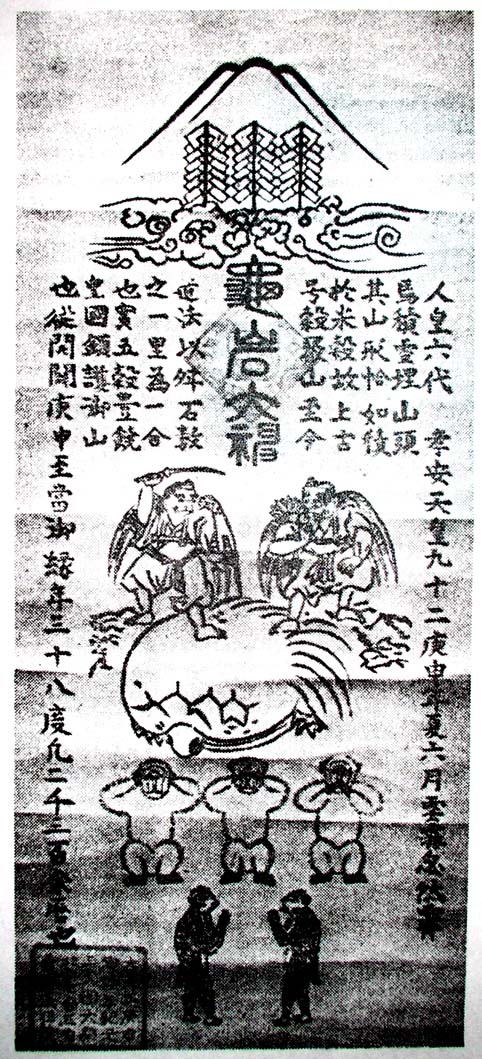 人皇六代 孝安天皇九十二庚申年夏六月雲霧忽然霽
焉積雪埋山頭
其山形恰如
於米穀故上古
号穀聚山至今
龜岩大神
道法以舛石数
之一里為一合
也實五穀豊饒
皇國鎮護御山
也從開闢庚申至當御縁年三十八度凡二千二百余年也